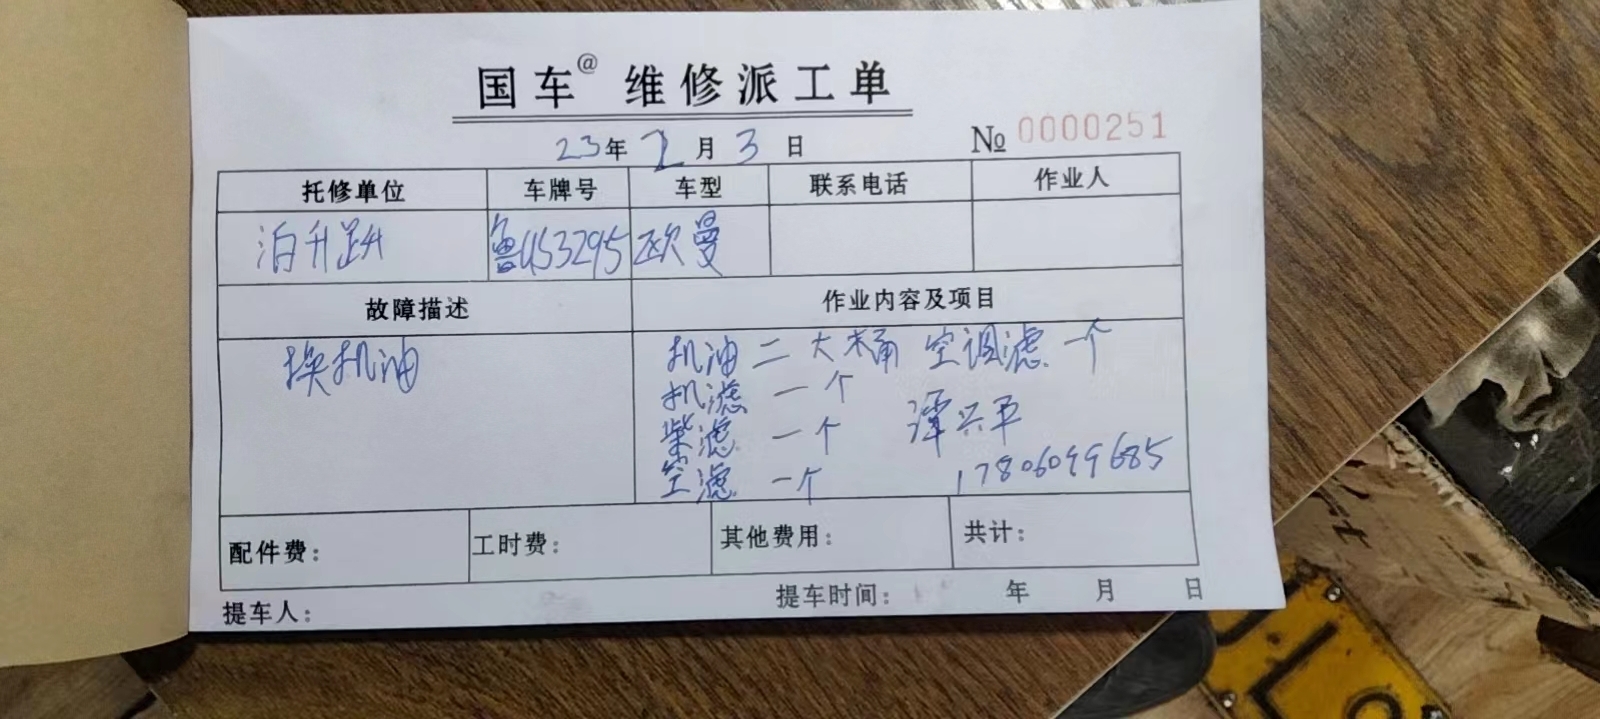 国车@ 维修派工单
23年 2月 3日 № 0000251
托修单位 车牌号 车型 联系电话 作业人
泊升跃 鲁U53295 欧曼
故障描述 作业内容及项目
换机油 机油 二大桶 空调滤 一个
机滤 一个
柴滤 一个 谭兴平
空滤 一个 17806099685
配件费: 工时费: 其他费用: 共计:
提车人: 提车时间: 年 月 日